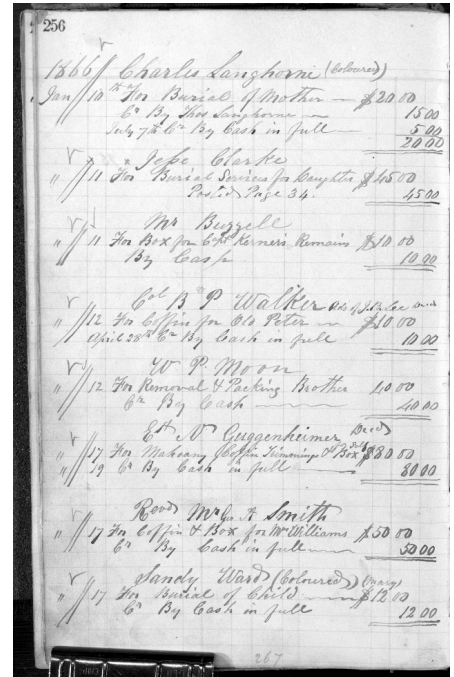 256
1866 Charles Langhorne (Coloured)
Jan 10th For Burial of Mother $20 00
Cr By Thos Langhorne 15 00
July 7th Cr By Cash in full 5 00
20 00
Jesse Clarke
" 11 For Burial Services for Daughter $45 00
Posted Page 34. 45 00
Mr Buzzell
" 11 For Box for Capt Kerner's Remains $10 00
By Cash 10 00
Col B P Walker
" 12 For Coffin for Old Peter $10 00
April 28th Cr By Cash in full 10 00
W P Moon
" 12 For Removal & Packing Brother 40 00
Cr By Cash 40 00
Est N Guggenheimer Decd
" 17 For Mahogany Coffin Trimmings & Box $80 00
" 19 Cr By Cash in full 80 00
Revd Mr Geo A Smith
" 17 For Coffin & Box for Mr Williams $50 00
Cr By Cash in full 50 00
Sandy Ward (Coloured)
" 17 For Burial of Child $12 00
Cr By Cash in full 12 00
267